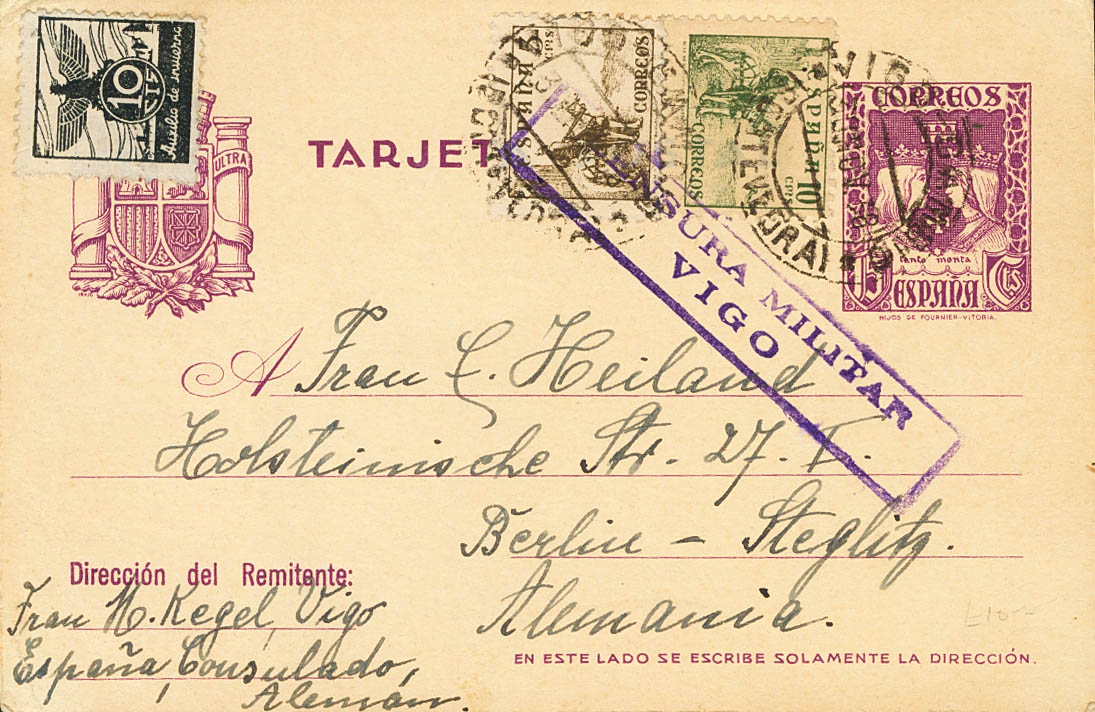 10
CTS
Auxilio de invierno
ULTRA
TARJET
España
CORREOS
España 10
CTS
CORREOS
CORREOS
tanto monta
ESPAÑA
HIJOS DE FOURNIER-VITORIA.
CENSURA MILITAR
VIGO
A Frau E. Heiland
Holsteinische Str. 27. I.
Berlin - Steglitz.
Alemania.
Dirección del Remitente:
Frau M. Kegel, Vigo
España, Consulado,
Alemán.
EN ESTE LADO SE ESCRIBE SOLAMENTE LA DIRECCIÓN.